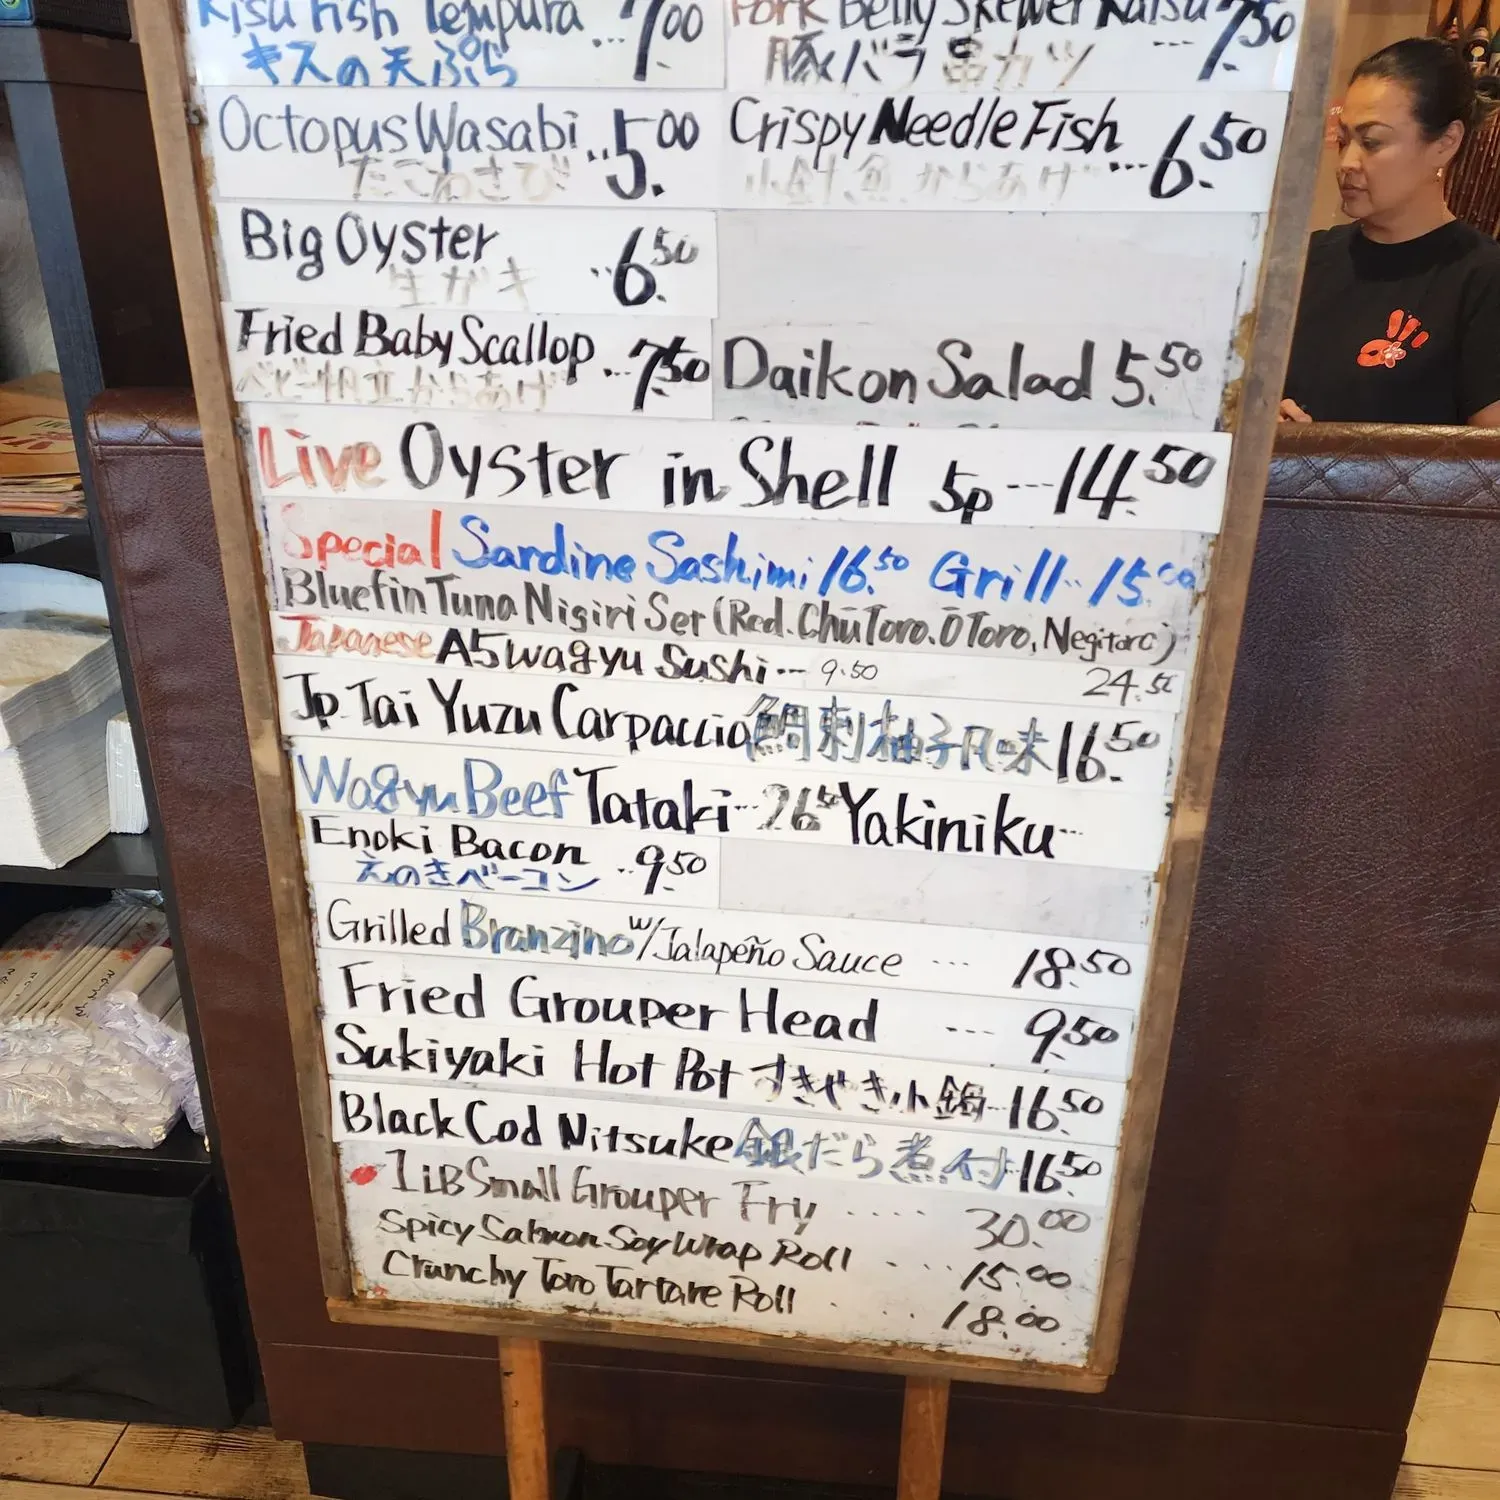 Kisu Fish Tempura ...7.00
キスの天ぷら
Pork Belly Skewer Katsu ...7.50
豚バラ串カツ
Octopus Wasabi ..5.00
たこわさび
Crispy Needle Fish ...6.50
小針魚からあげ
Big Oyster ..6.50
生ガキ
Fried Baby Scallop ...7.50
ベビー帆立からあげ
Daikon Salad 5.50
Live Oyster in Shell 5p ---14.50
Special Sardine Sashimi 16.50 Grill.. 15.00
Bluefin Tuna Nigiri Set (Red. Chū Toro. Ō Toro, Negitoro)
24.50
Japanese A5 Wagyu Sushi --- 9.50
Jp Tai Yuzu Carpaccio 鯛刺柚子風味 16.50
Wagyu Beef Tataki --- 26.50 Yakiniku ---
Enoki Bacon ..9.50
えのきベーコン
Grilled Branzino w/Jalapeño Sauce ... 18.50
Fried Grouper Head --- 9.50
Sukiyaki Hot Pot すきやき小鍋--16.50
Black Cod Nitsuke 銀だら煮付 16.50
1LB Small Grouper Fry .... 30.00
Spicy Salmon Soy Wrap Roll .... 15.00
Crunchy Toro Tartare Roll . .. 18.00